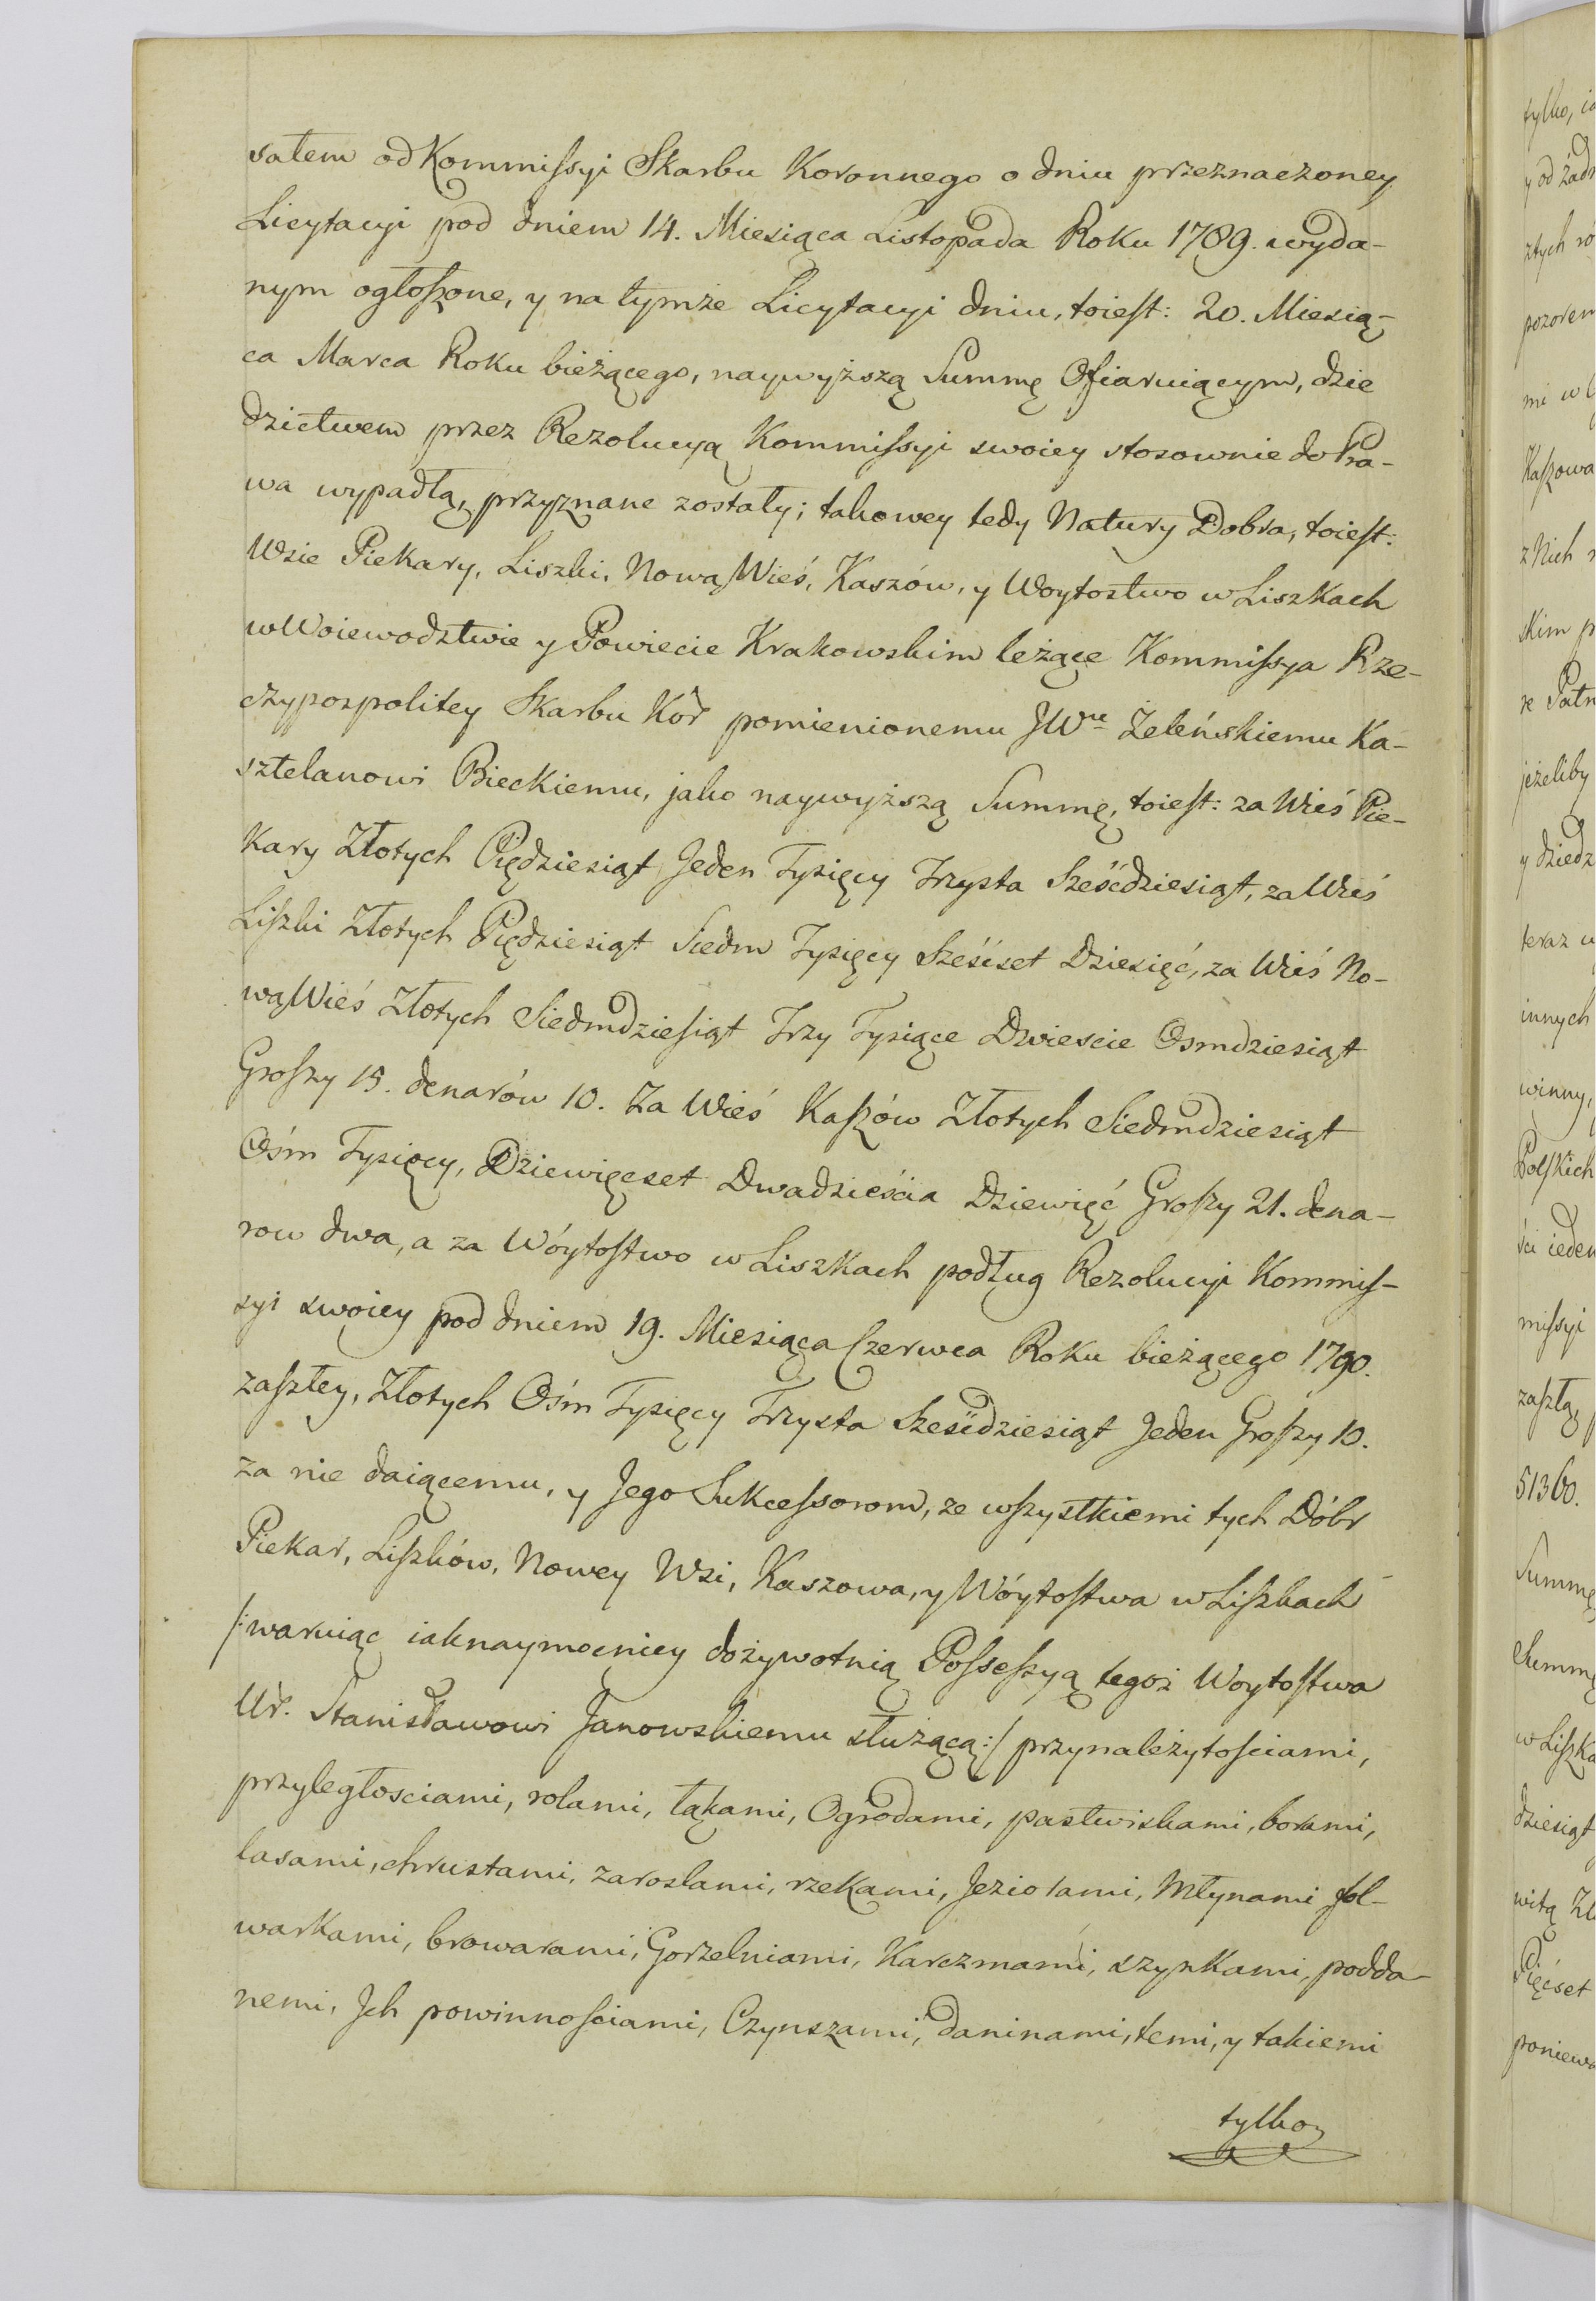 satem od Kommissyi Skarbu Koronnego o dniu przeznaczoney
Licytacyi pod dniem 14. Miesiąca Listopada Roku 1789. wyda-
nym ogłoszone, y na tymże Licytacyi dniu, toiest: 20. Miesią-
ca Marca Roku bieżącego, naywyższą Summę Ofiaruiącym, dzie
dzictwem przez Rezolucyą Kommissyi swoiey stosownie do Pra-
wa wypadłą, przyznane zostały; takowey tedy Natury Dobra, toiest:
Wsie Piekary, Liszki, Nową Wieś, Kaszów, y Woytostwo w Liszkach
w Woiewodztwie y Powiecie Krakowskim leżące Kommissya Rze-
czypospolitey Skarbu Kor pomienionemu JWu Żeleńskiemu Ka-
sztelanowi Bieckiemu, jako naywyższą Summę, toiest: za Wieś Pie-
kary Złotych Pięćdziesiąt Jeden Tysięcy Trzysta Sześćdziesiąt, za Wieś
Liszki Złotych Pięćdziesiąt Siedm Tysięcy Sześćset Dziesięć, za Wieś No-
wą Wieś Złotych Siedmdziesiąt Trzy Tysiące Dwieście Osmdziesiąt
Groszy 15. denarów 10. Za Wieś Kaszów Złotych Siedmdziesiąt
Ośm Tysięcy, Dziewięćset Dwadzieścia Dziewięć Groszy 21. dena-
row dwa, a za Wóytostwo w Liszkach podług Rezolucyi Kommis-
syi swoiey pod dniem 19. Miesiąca Czerwca Roku bieżącego 1790.
zaszłey, Złotych Ośm Tysięcy Trzysta Sześćdziesiąt Jeden Groszy 10.
za nie daiącemu, y Jego Sukcessorom, ze wszystkiemi tych Dóbr
Piekar, Liszków, Nowey Wsi, Kaszowa, y Wóytostwa w Liszkach
/:waruiąc iaknaymocniey dożywotnią Possessyą tegoż Woytostwa
Ur. Stanisławowi Janowskiemu służącą:/ przynależytościami,
przyległosciami, rolami, łąkami, Ogrodami, pastwiskami, borami,
lasami, chrustami, zaroslami, rzekami, Jeziorami, Młynami fol-
warkami, browarami, Gorzelniami, Karczmami, szynkami, podda-
nemi, Jch powinnościami, Czynszami, daninami, temi, y takiemi
tylko,